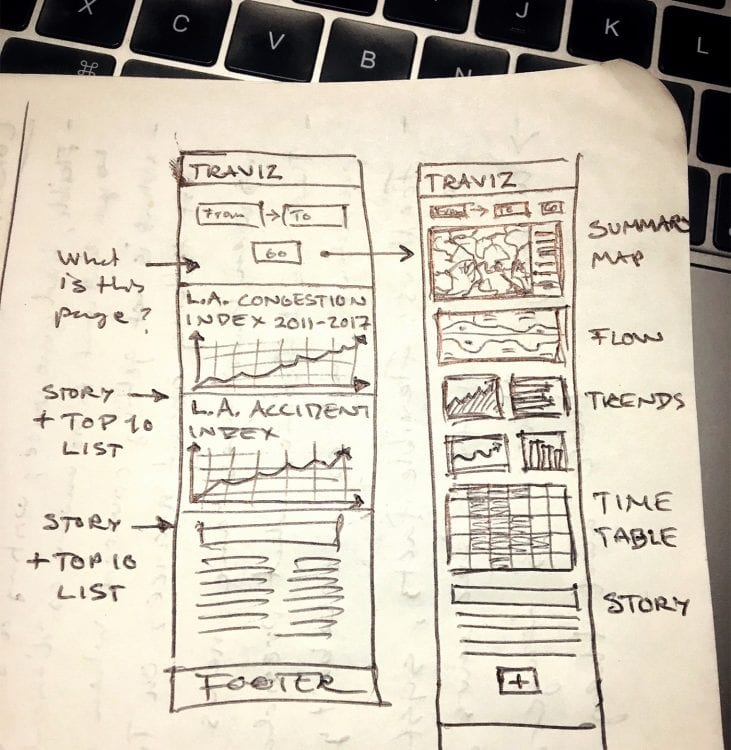 X
C
V
B
N
J
K
L
⌘
TRAVIZ
From → To
GO
What
is this
page?
L.A. CONGESTION
INDEX 2011-2017
STORY
+ TOP 10
LIST
L.A. ACCIDENT
INDEX
STORY
+ TOP 10
LIST
FOOTER
TRAVIZ
From → To GO
SUMMARY
MAP
FLOW
TRENDS
TIME
TABLE
STORY
+